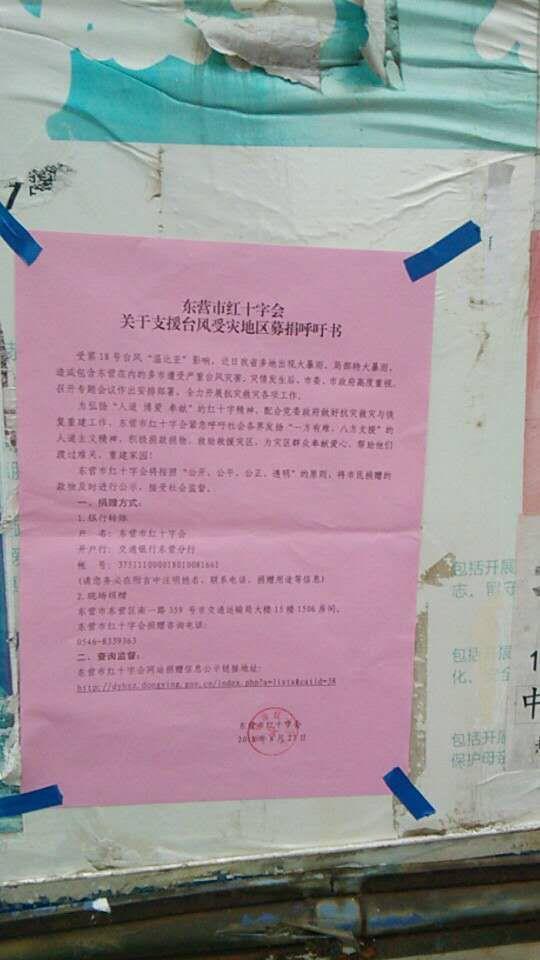 东营市红十字会
关于支援台风受灾地区募捐呼吁书
受第18号台风“温比亚”影响，近日我省多地出现大暴雨，局部特大暴雨，
造成包含东营在内的多市遭受严重台风灾害。灾情发生后，市委、市政府高度重视，
召开专题会议作出安排部署，全力开展抗灾救灾各项工作。
为弘扬“人道 博爱 奉献”的红十字精神，配合党委政府做好抗灾救灾与恢
复重建工作，东营市红十字会紧急呼吁社会各界发扬“一方有难，八方支援”的
人道主义精神，积极捐款捐物，救助救援灾区，为灾区群众奉献爱心，帮助他们
渡过难关，重建家园！
东营市红十字会将按照“公开、公平、公正、透明”的原则，将市民捐赠的
款物及时进行公示，接受社会监督。
一、捐赠方式：
1.银行转账
户 名：东营市红十字会
开户行：交通银行东营分行
帐 号：
(请您务必在附言中注明姓名、联系电话、捐赠用途等信息)
2.现场捐赠
东营市东营区南一路359号市交通运输局大楼15楼1506房间。
东营市红十字会捐赠咨询电话：
0546-8339363
二、查询监督：
东营市红十字会网站捐赠信息公示链接地址：
http://dyhsz.dongying.gov.cn/index.php?a=lists&catid=38
东营市红十字会
2018年8月23日
包括开展
志、留守
包括开展
化、安全
包括开展
保护母亲
1
中